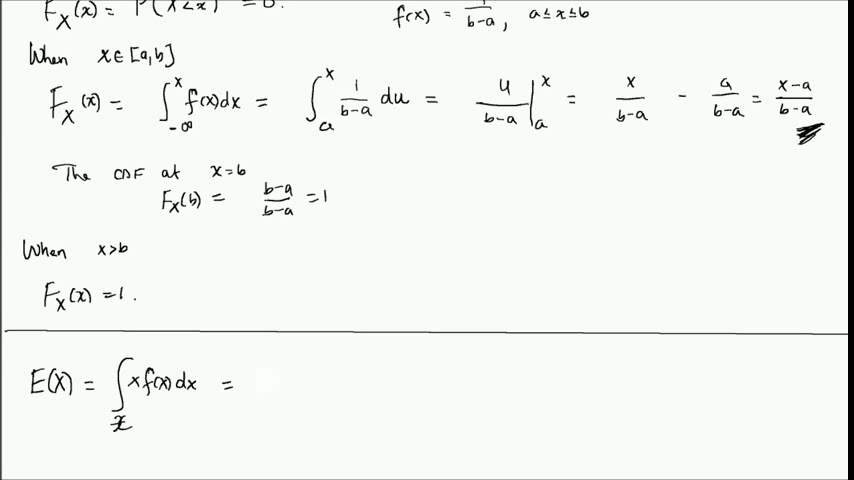 F_X(x) = P(X<x) = 0.
f(x) = 1/(b-a), a≤x≤b
When x∈[a,b]
F_X(x) = ∫_{-∞}^{x} f(x)dx = ∫_{a}^{x} 1/(b-a) du = u/(b-a) |_{a}^{x} = x/(b-a) - a/(b-a) = (x-a)/(b-a)
The CDF at x=b
F_X(b) = (b-a)/(b-a) = 1
When x>b
F_X(x) = 1.
E(X) = ∫_x x f(x) dx =